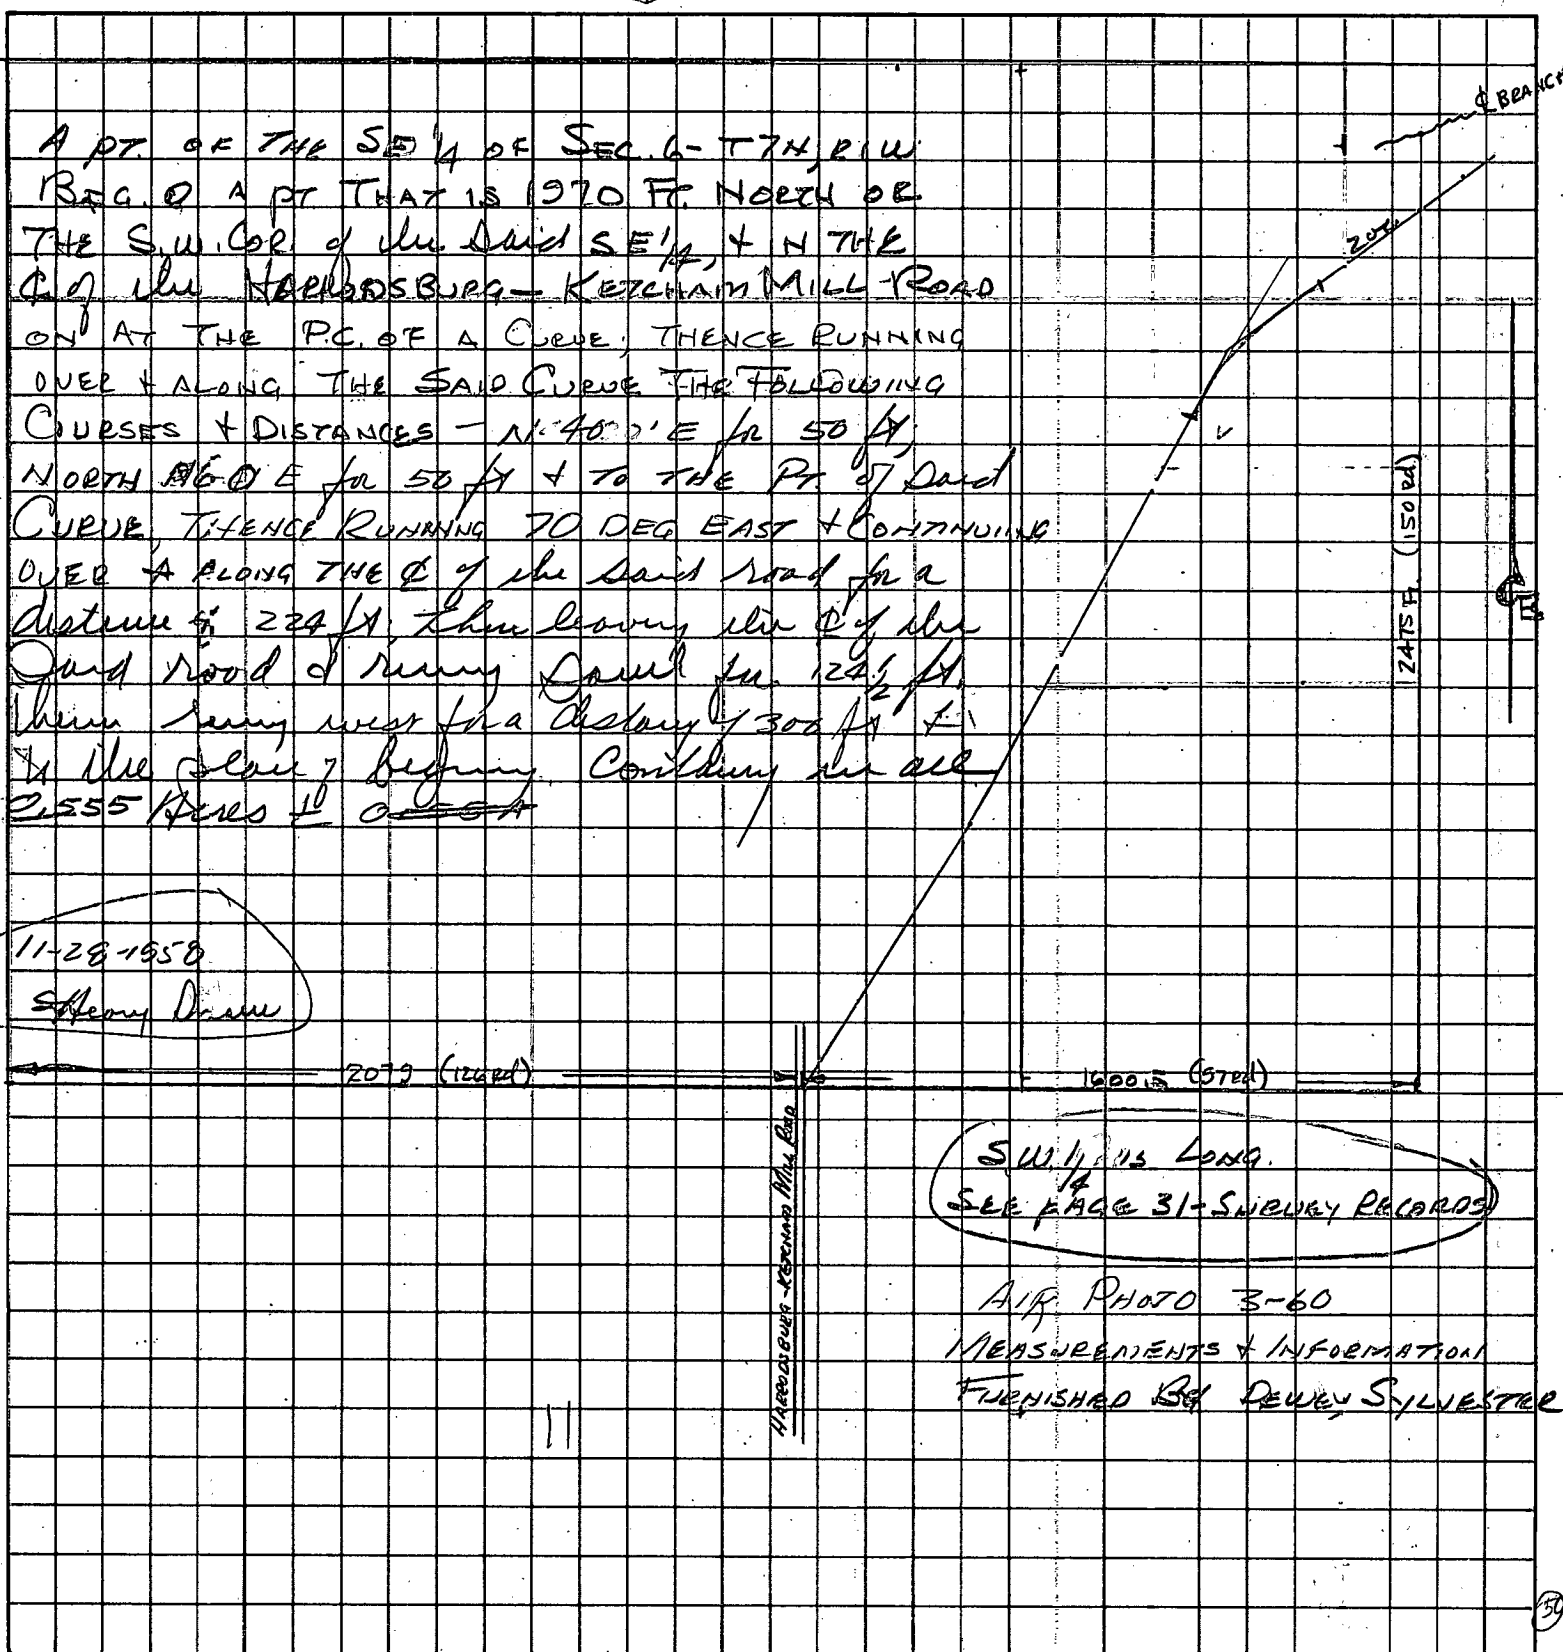 A PT. OF THE SE 1/4 OF SEC. 6 - T7N, R1W
BEG. @ A PT THAT IS 1970 FT. NORTH OF
THE S.W. COR. of the Said SE 1/4, & N THE
℄ of the HARRODSBURG - KETCHAM MILL ROAD
ON AT THE P.C. OF A CURVE, THENCE RUNNING
OVER & ALONG THE SAID CURVE THE FOLLOWING
COURSES & DISTANCES - N. 40 E for 50 ft,
NORTH 60 E for 50 ft & TO THE PT. of Said
CURVE, THENCE RUNNING 70 DEG EAST & CONTINUING
OVER & ALONG THE ℄ of the said road for a
distance of 224 ft, then leaving the ℄ of the
Said road & runing South for 124 1/2 ft.
then runing west for a distance of 300 ft &
to the place of begining. Containing in all
0.555 Acres ±
11-28-1958
℄ BRANCH
202
2475 Ft. (150 Rd)
℄
2079 (126 Rd)
(57 Rd)
HARRODSBURG - KETCHAM MILL ROAD
S.W. 1/4 IS LONG.
SEE PAGE 31 - SURVEY RECORDS
AIR PHOTO 3-60
MEASUREMENTS & INFORMATION
FURNISHED BY DEWEY SYLVESTER